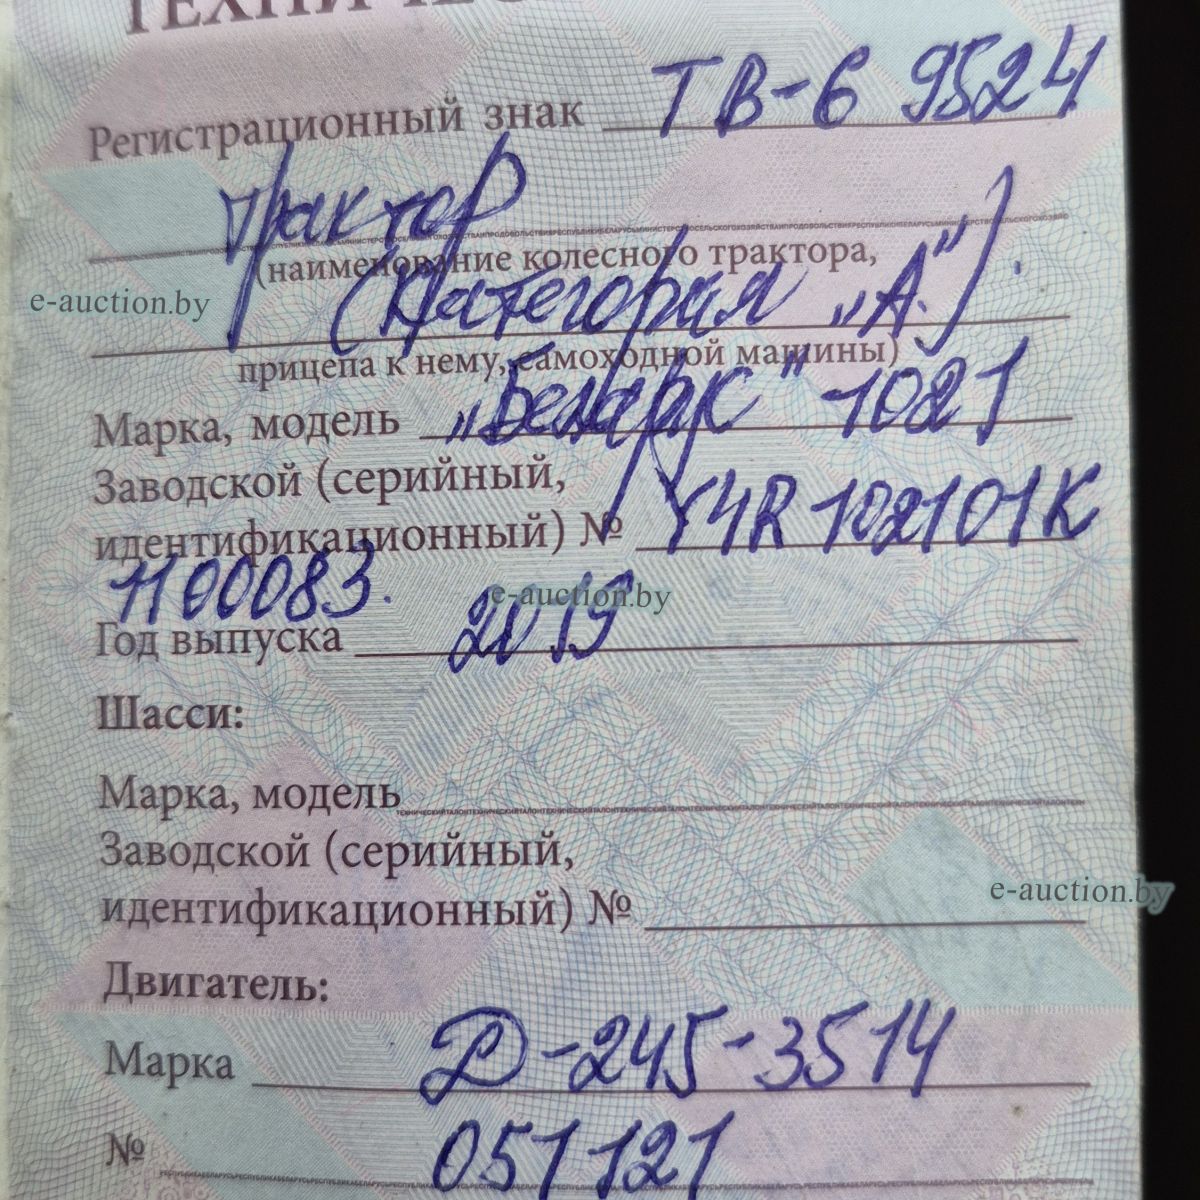 Регистрационный знак ТВ-6 9524
трактор
(наименование колесного трактора,
(категория „А")
прицепа к нему, самоходной машины)
Марка, модель „Беларус" 1021
Заводской (серийный,
идентификационный) № Y4R102101K
1100083.
Год выпуска 2019
Шасси:
Марка, модель
Заводской (серийный,
идентификационный) №
Двигатель:
Марка Д-245-3514
№ 051121
e-auction.by
e-auction.by
e-auction.by